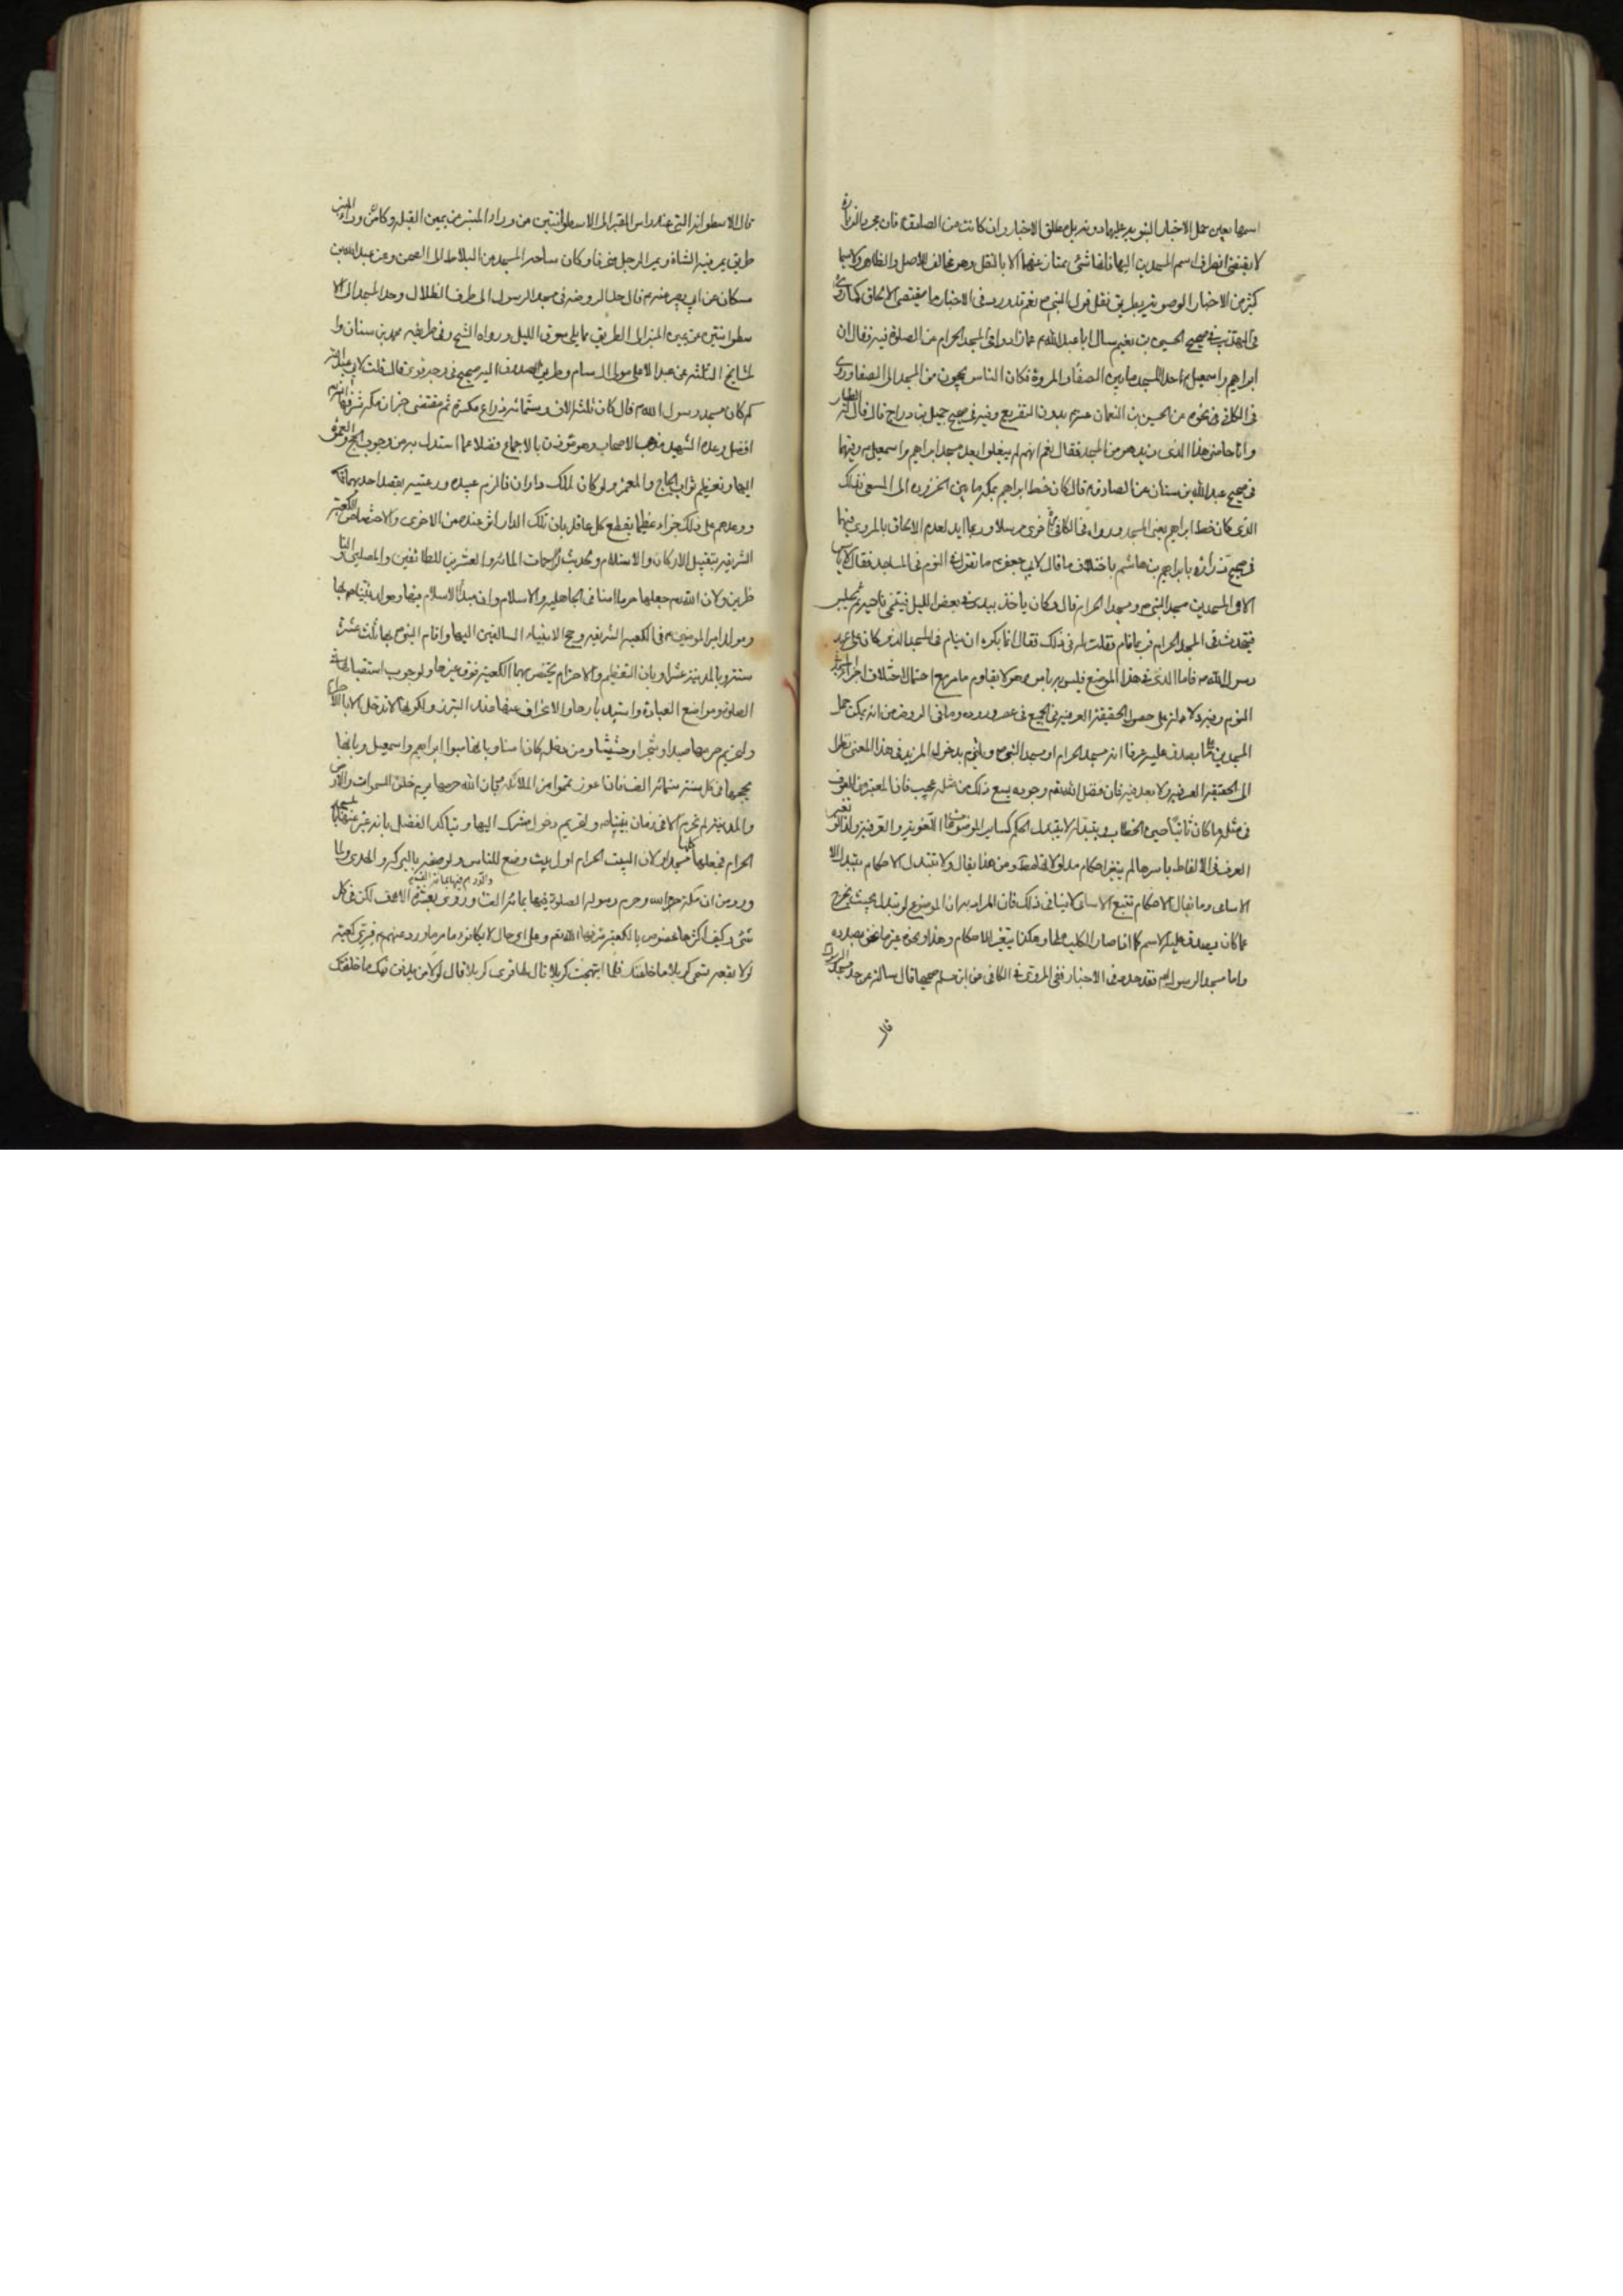 اسمها بعين حمل الاخبار النبوية عليها دون بل مطلق الاخبار وان كانت من الصادق فان مجرد الزيادة
لا يقتضي انصراف اسم المسجدين اليها فانها شئ يمتاز عنهما الا بالنقل وهو مخالف للاصل والظاهر ولا سيما
كثر من الاخبار الموصوية بطريق نقل قول النبي ص نعم قد ورد في الاخبار ما يقتضي الالحاق كما روى
في التهذيب في صحيح الحسين بن نعيم سال ابا عبد الله ع عما زادوا في المسجد الحرام عن الصلوة فيه فقال ان
ابراهيم واسمعيل ع حدا المسجد ما بين الصفا والمروة فكان الناس يحجون من المسجد الى الصفا وروى
في الكافي نحوه عن الحسين بن النعمان عنه ع بدون التفريع وفيه في صحيح جميل بن دراج قال قال له الطيار
وانا حاضر هذا الذي زيد هو من المسجد فقال نعم انهم لم يبلغوا بعد مسجد ابراهيم واسمعيل ع وفيهما
في صحيح عبد الله بن سنان عن الصادق ع قال كان خط ابراهيم بمكة ما بين الحزورة الى المسعى فذلك
الذي كان خط ابراهيم يعني المسجد ورواه في الكافي اخرى مرسلا وربما ايد لعدم الالحاق بالمروي فيهما
في صحيح زرارة بابراهيم بن هاشم باختلاف ما قال لابي جعفر ع ما تقول في النوم في المساجد فقال لا باس
الا في المسجدين مسجد النبي ص ومسجد الحرام قال وكان ياخذ بيدي في بعض الليل فيتنحى ناحية ثم يجلس
فيتحدث في المسجد الحرام فربما نام فقلت له في ذلك فقال انما يكره ان ينام في المسجد الذي كان على عهد
رسول الله ص فاما الذي في هذا الموضع فليس به باس وهو لا يقاوم ما مر مع احتمال اختلاف اجزاء المسجد
النوم وفيه دلالة على حصول الحقيقة العرفية في الجميع في عصر وروده وما في الروض من انه يمكن حمل
المسجدين على ما يصدق عليه عرفا انه مسجد الحرام او مسجد النبي ص ويلتزم بدخول المزيد في هذا المعنى نظرا
الى الحقيقة العرفية ولا بعد فيه فان فضل الله تعم وجوده يسع ذلك من مثله عجيب فان المعتبر من العرف
في مثله ما كان ثابتا حين الخطاب وبتبدله لا يتبدل الحكم كساير الموضوعات اللغوية والعرفية ولذا لو تغير
العرف في الالفاظ باسرها لم يتغير احكام مدلولاتها ومن هنا يقال ولا تتبدل الاحكام بتبدل الا
الاسامي وما يقال الاحكام تتبع الاسامي لا ينافي ذلك فان المراد به ان الموضوع لو تبدل بحيث يخرج
عما كان يصدق عليه الاسم كما اذا صار الكلب ملحا وهكذا يتغير الاحكام وهذا ونحوه غير ما نحن بصدده
واما مسجد الرسول ص فقد حد في الاخبار ففي المروي في الكافي عن ابن مسلم صحيحا قال سالته عن حد مسجد الرسول
قال
قال الاسطوانة التي عند راس القبر الى الاسطوانتين من وراء المنبر عن يمين القبلة وكان من وراء المنبر
طريق يمر فيه الشاة ويمر الرجل منحرفا وكان ساحة المسجد من البلاط الى الصحن وعن عبد الله بن
مسكان عن ابي بصير عنه ع قال حد الروضة في مسجد الرسول الى طرف الظلال وحد المسجد الى الا
سطوانتين عن يمين المنبر الى الطريق مما يلي سوق الليل ورواه الشيخ وفي طريقه محمد بن سنان وا
لمشايخ الثلثة عن عبد الاعلى مولى ال سام وطريق الصدوق اليه صحيح في وجه قوي قال قلت لابي عبد الله
كم كان مسجد رسول الله ص قال كان ثلثة الاف وستمائة ذراع مكسرة ثم مقتضى خبر ان مكة شرفها الله
افضل وعده الشهيد مذهب الاصحاب وهو مؤذن بالاجماع فضلا عما استدل به من وجوب الحج والعمرة
اليها وتعظيم ثواب الحاج والمعتمر ولو كان لملك داران فالزم عبيده ورعيته بقصد احديهما
ووعدهم على ذلك جزاء عظيما يقطع كل عاقل بان تلك الدار اثر عنده من الاخرى والاختصاص الكعبة
الشريفة بتقبيل الاركان والاستلام وبحديث الرحمات المائة والعشرين للطائفين والمصلين والنا
ظرين ولان الله تعم جعلها حرما امنا في الجاهلية والاسلام وان مبدأ الاسلام فيها ومولد نبينا ص بها
ومولد امير المؤمنين ع في الكعبة الشريفة وحج الانبياء السالفين اليها واقام النبي ص بها ثلث عشرة
سنة وبالمدينة عشرا وبان التعظيم والاحترام يختص بها الكعبة فوق غيرها ولوجوب استقبالها في
الصلوة ومواضع العبادة واستدبارها والانحراف عنها عند التبرز ولكونها لا تدخل الا بالاحرام
ولتحريم حرمها صيدا وشجرا وحشيشا ومن دخله كان امنا وبانها مبوا ابراهيم واسمعيل وبانها
يحجها في كل سنة ستمائة الف فان اعوز تمموا من الملائكة وبان الله حرمها يوم خلق السموات والارض
والمدينة لم تحرم الا في زمان نبيناص ولتحريم دخول مشرك اليها ويتاكد الفضل بانه عبر عنها بالمسجد
الحرام فجعلها كلها مسجدا ولان البيت الحرام اول بيت وضع للناس ولوصفه بالبركة والهدى ولما
ورد من ان مكة حرم الله وحرم رسوله الصلوة فيها بمائة الف وروي بعشرة الاف لكن في كل
شئ وكيف اكثرها مخصوص بالكعبة شرفها الله تعم وعلى اي حال لا يكافؤ ما مر ما ورد عنهم ع فترى كعبة
لولا بقعة تسمى كربلا ما خلقتك فلما ابتهجت كربلا قال لها قري كربلا قال لولا من يدفن فيك ما خلقتك